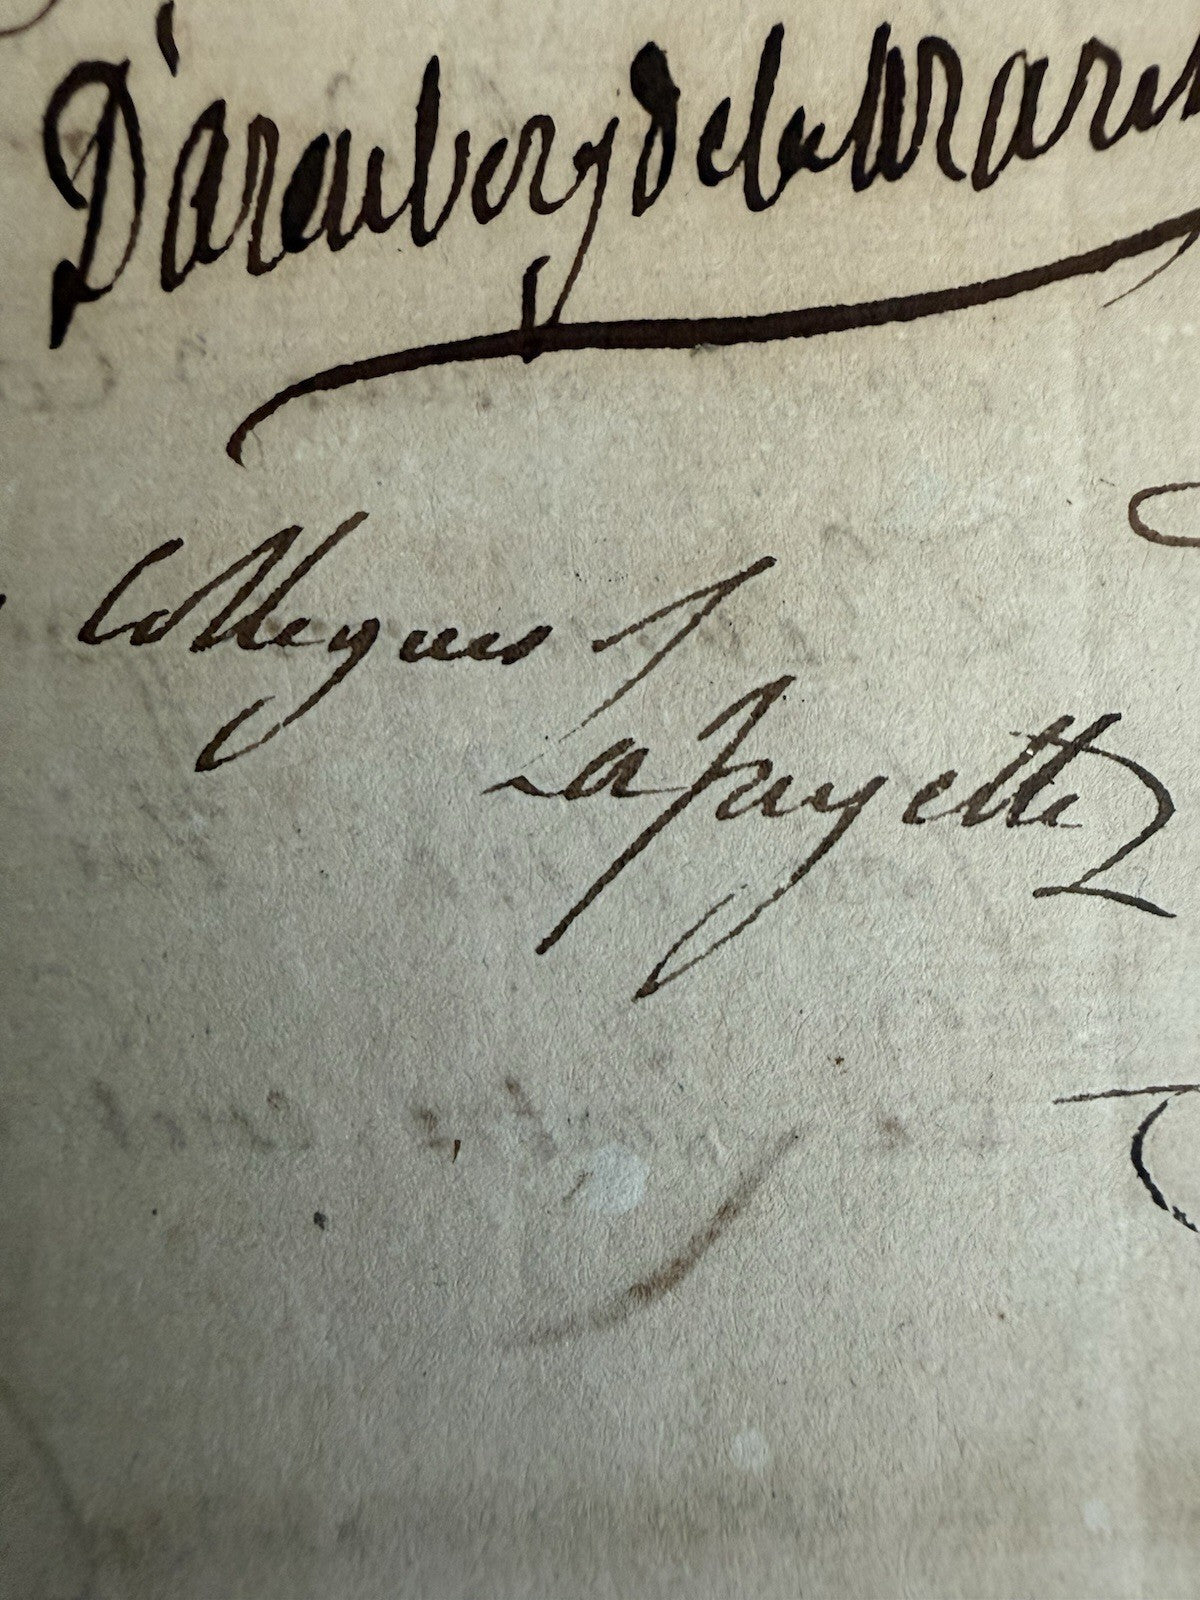 D'aremberg de la Marck
Collegues
Lafayette